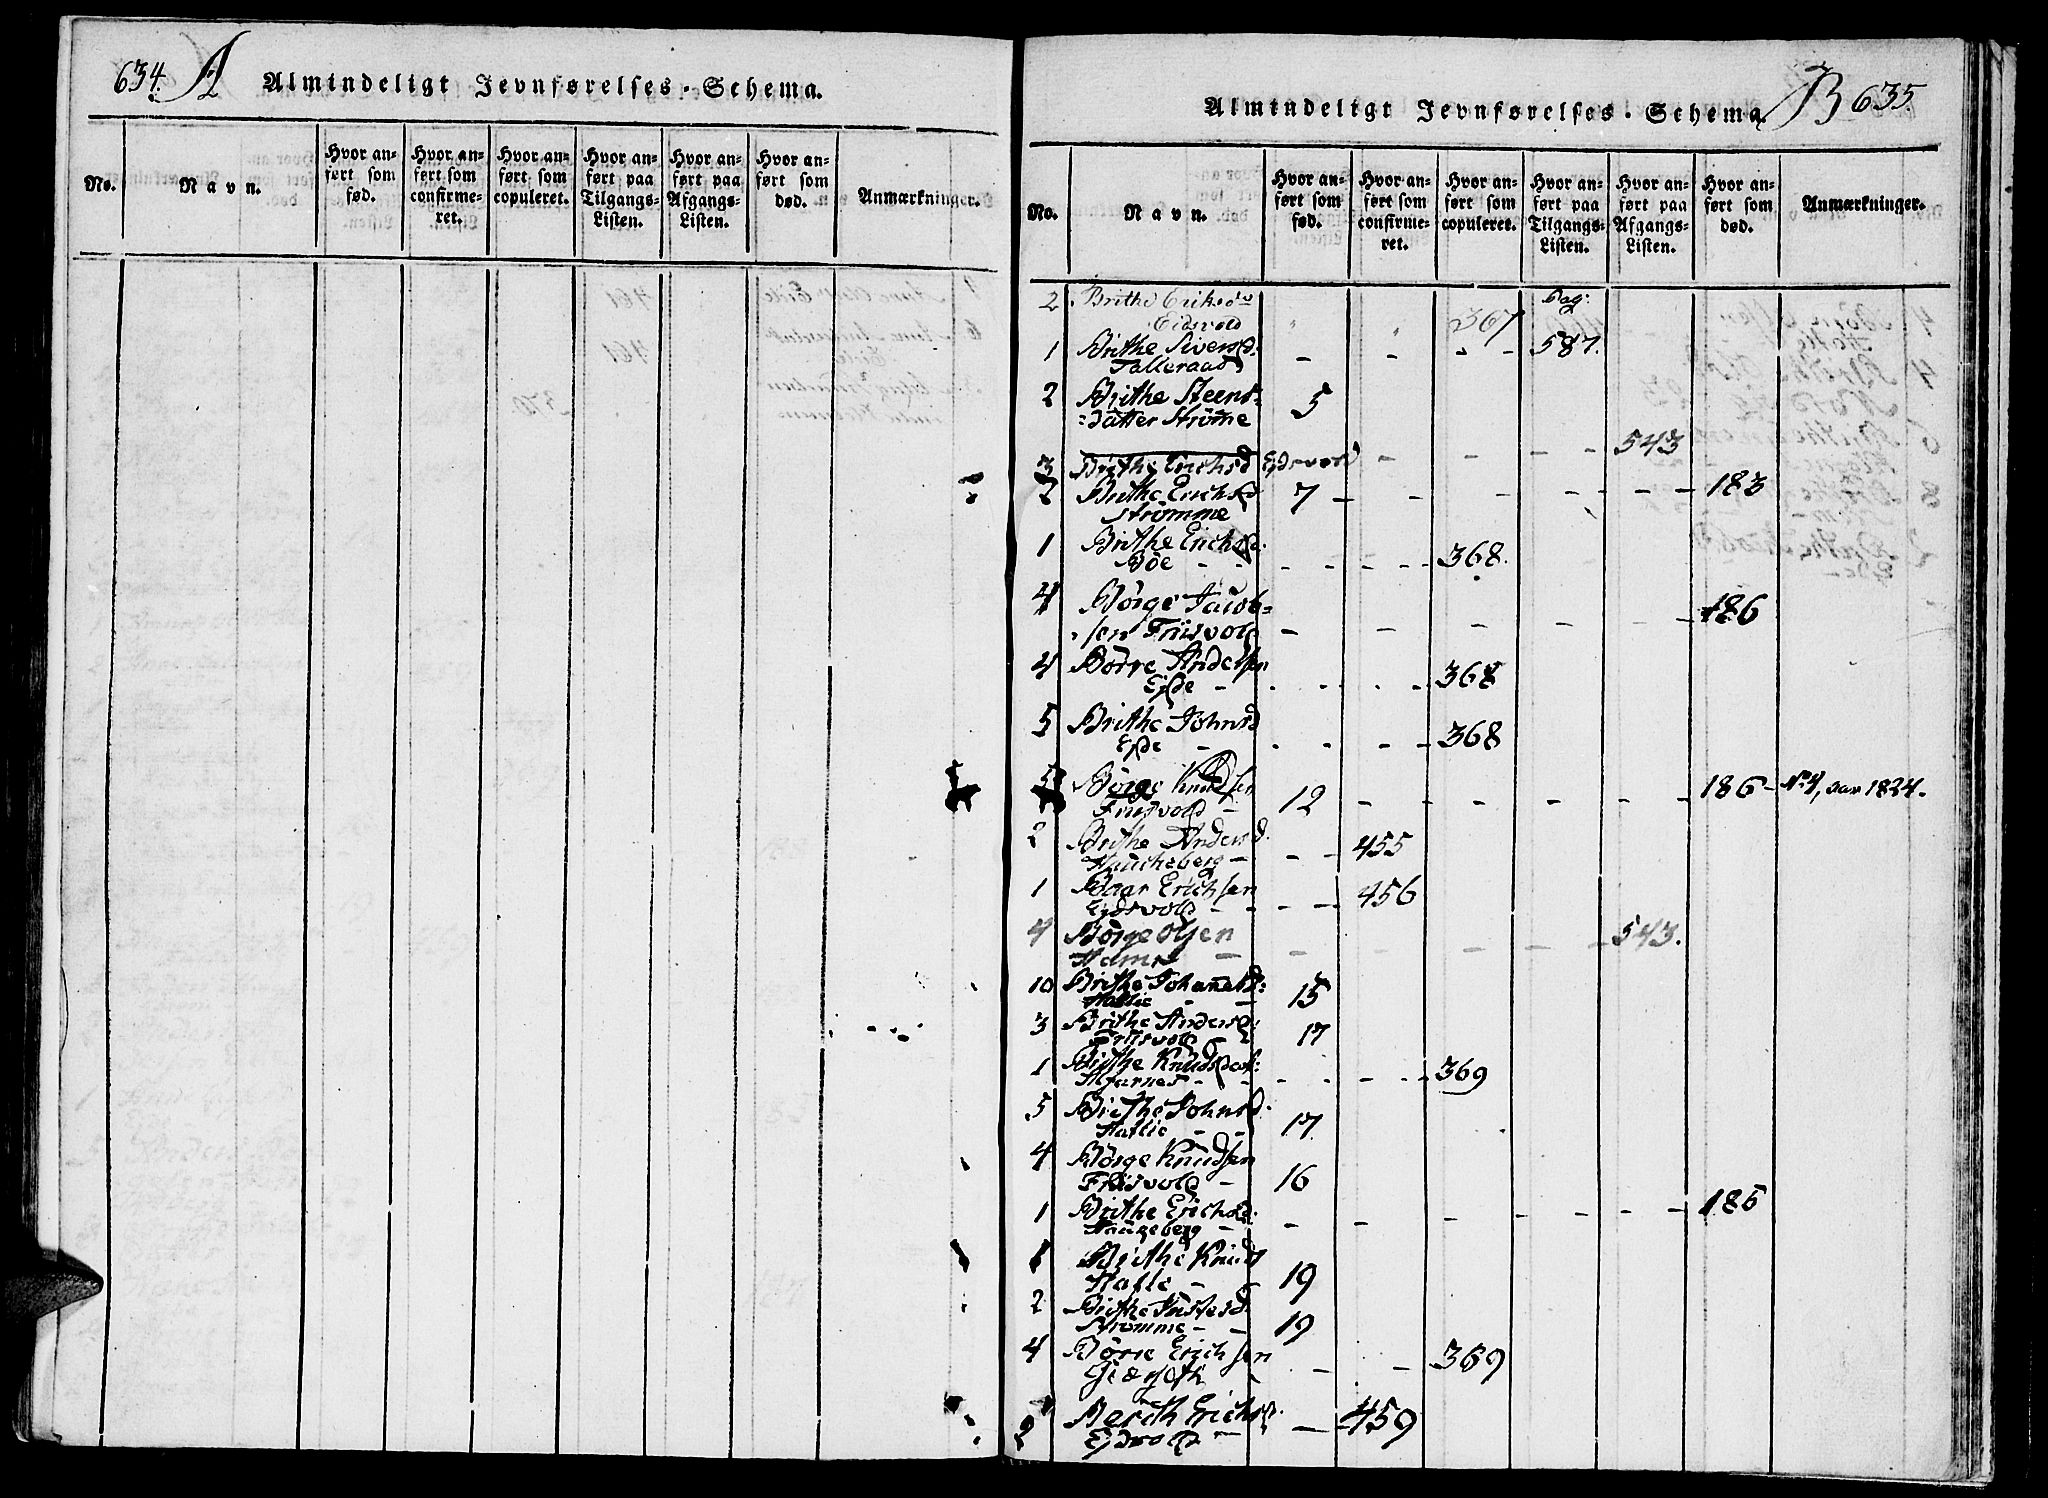 634. A Almindeligt Jevnførelses-Schema.
No.
Navn.
Hvor an-
ført som
fød.
Hvor an-
ført som
confirme-
ret.
Hvor an-
ført som
copuleret.
Hvor an-
ført paa
Tilgangs-
Listen.
Hvor an-
ført paa
Afgangs-
Listen.
Hvor an-
ført som
død.
Anmærkninger.
Almindeligt Jevnførelses-Schema. B 635
No.
Navn.
Hvor an-
ført som
fød.
Hvor an-
ført som
confirme-
ret.
Hvor an-
ført som
copuleret.
Hvor an-
ført paa
Tilgangs-
Listen.
Hvor an-
ført paa
Afgangs-
Listen.
Hvor an-
ført som
død.
Anmærkninger.
2 Brithe Eriksdr pag:
Eidsvold " " 367
1 Brithe Siversd. - - - 587.
Talleraad
2 Brithe Steens- 5
-datter Strömme
3 Brithe Erichsd Ejdsvold - - - 543
2 Brithe Erichsd 7 - - - - - 183
Strömme
1 Brithe Erichsd.
Böe - - - - 368.
4 Börge Jacob-
sen Friisvold - - - - - 186
4 Börre Andersen
Ejde - - - 368
5 Brithe Johnsd
Ejde - - - 368
5 Börge Knudsen
Friisvold - 12 - - - - - 186- No 4, aar 1824.
2 Brithe Andersd.
Haucheberg - - - 455
1 Baar Erichsen
Ejdsvold - - - 456
4 Börge Olsen
Hamr - - - - - 543.
10 Brithe Johannesd:
Hatlie - - 15
3 Brithe Andersd:
Friisvold - 17
1 Brithe Knudsdat:
Alfarnes - - - - 369
5 Brithe Johnsd.
Hatlie - - 17
4 Börge Knudsen
Friisvold - 16
1 Brithe Erichsd.
Haugeberg - - - - - - 185
1 Brithe Knud
Hatle - 19
2 Brithe Iversd
Strömme - - 19
4 Börre Erichsen
- - 369
2 Berith Erichsd.
Ejdsvold - - 459